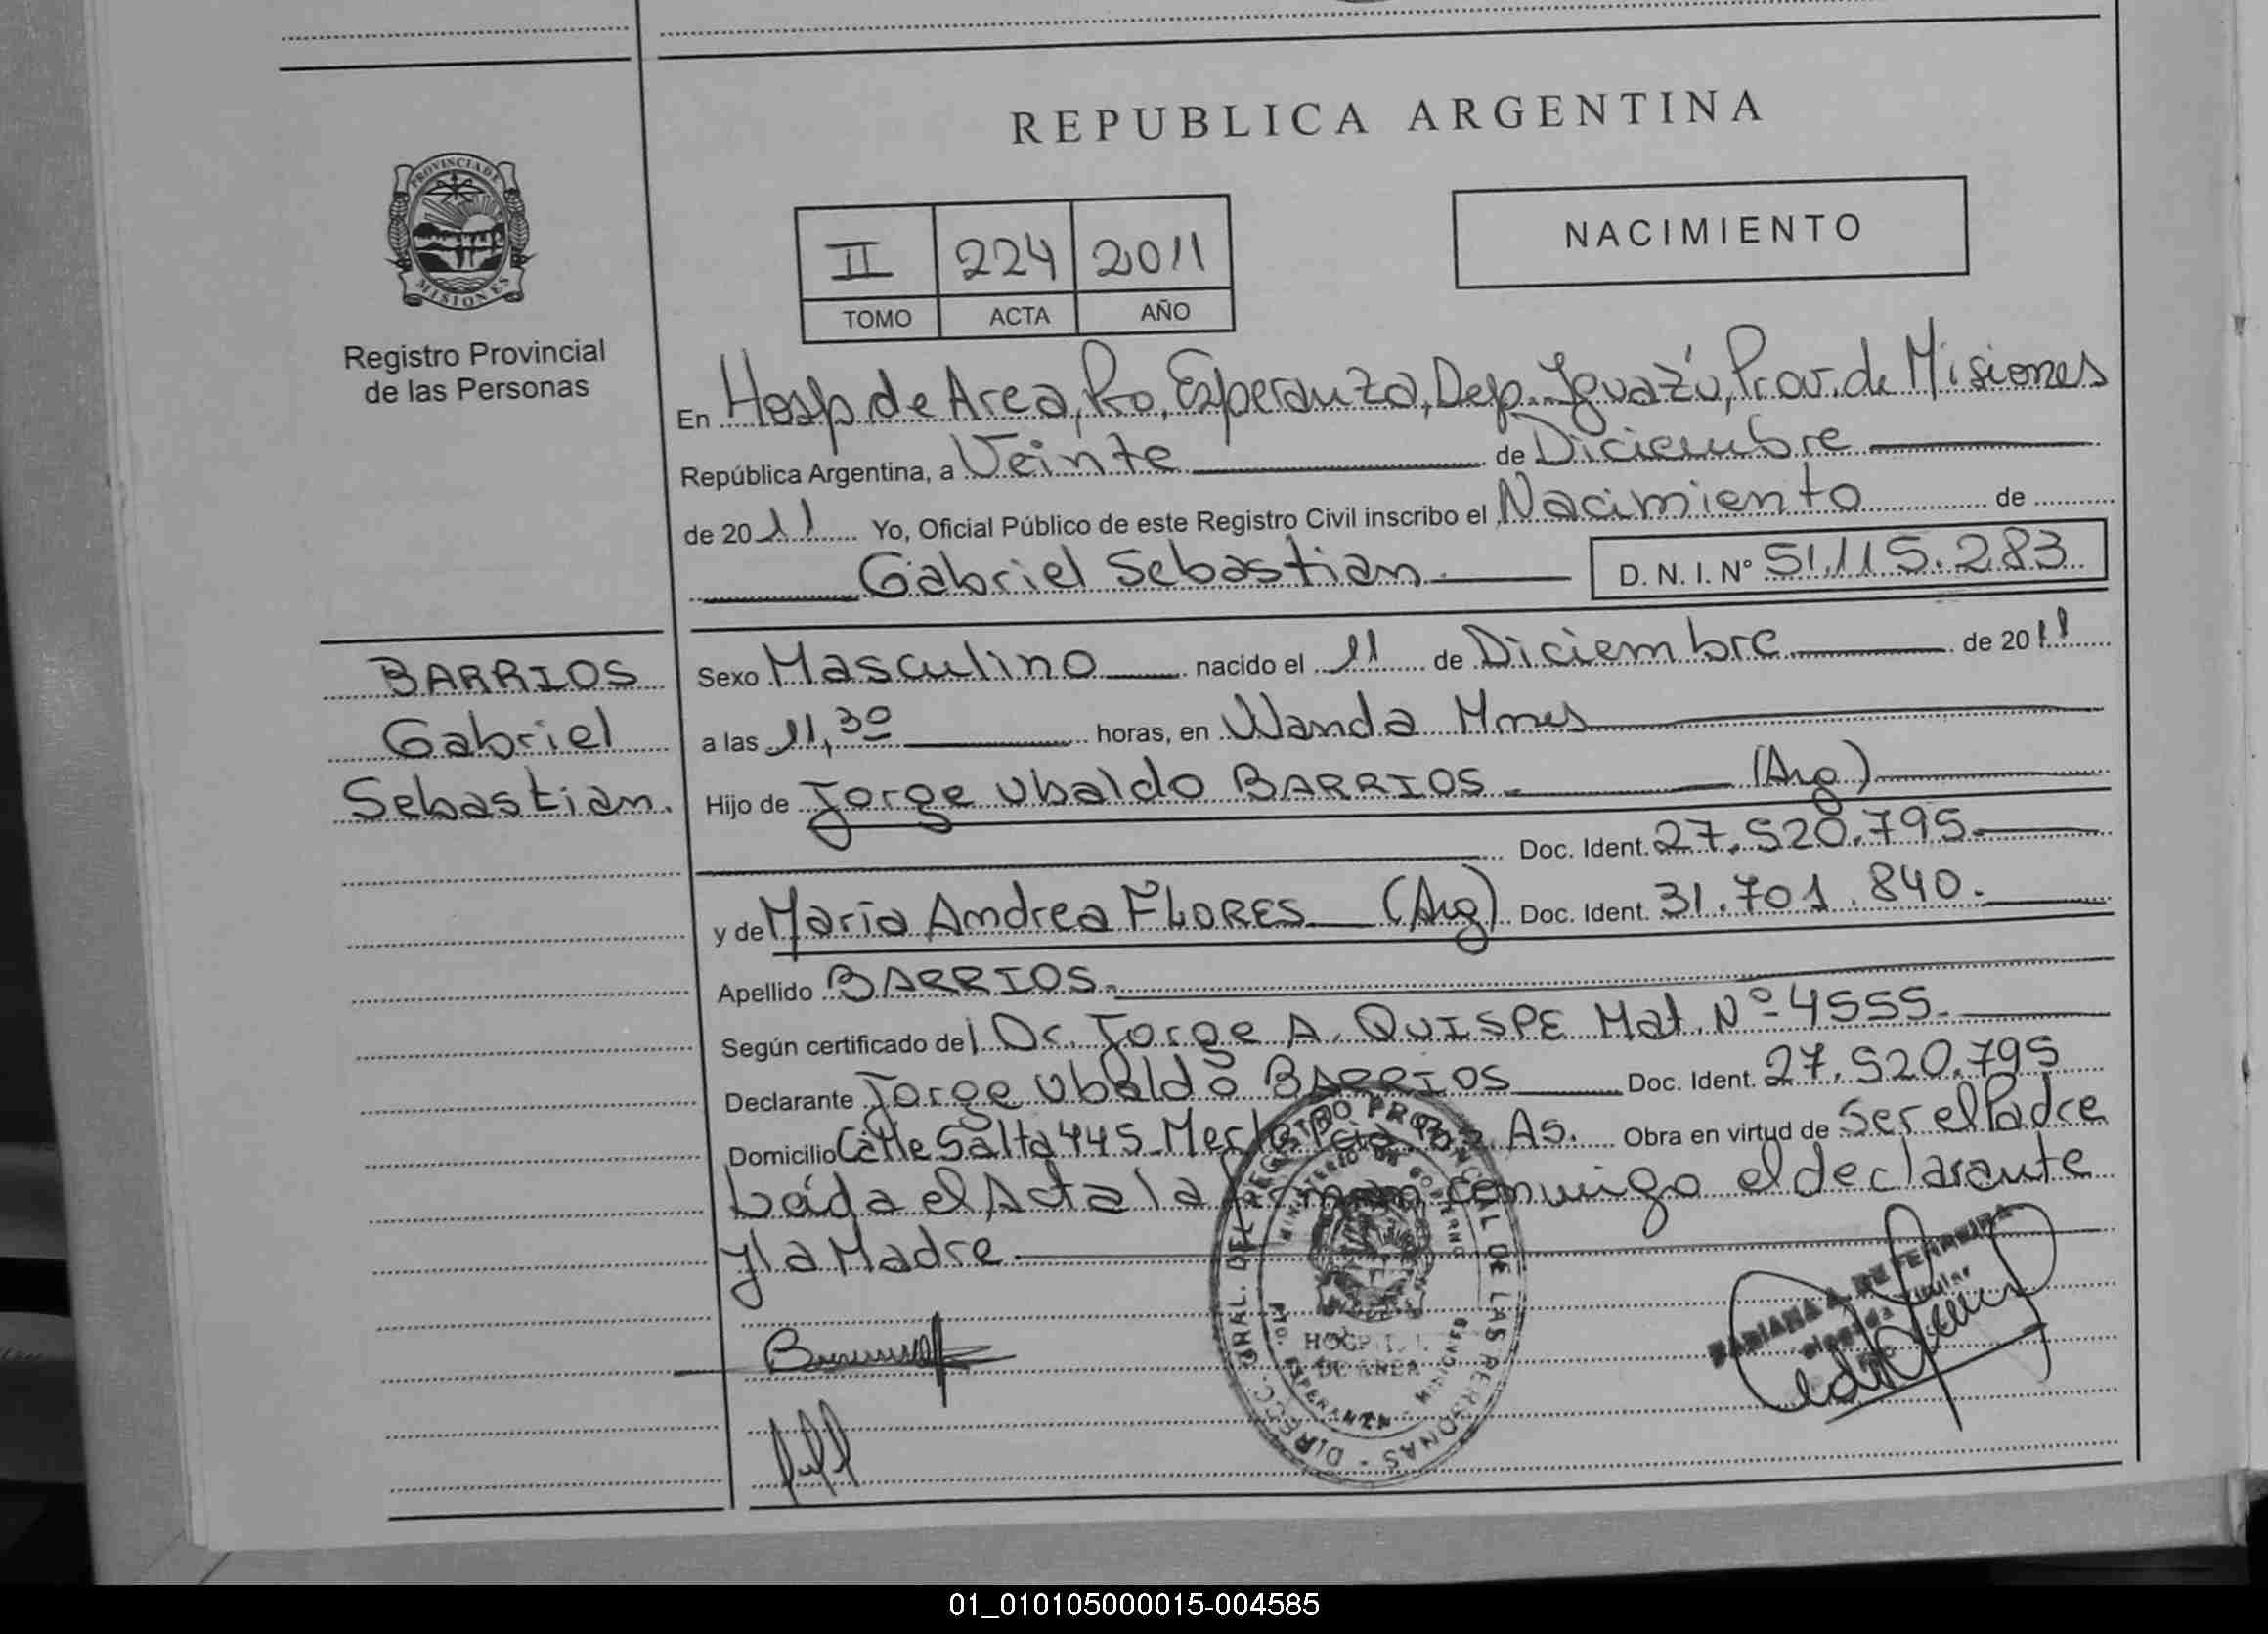 REPUBLICA ARGENTINA
PROVINCIA DE
MISIONES
Registro Provincial
de las Personas
II 224 2011
TOMO ACTA AÑO
NACIMIENTO
En Hosp de Area, Pto, Esperanza, Dep. Iguazú, Prov. de Misiones
República Argentina, a Veinte de Diciembre
de 2011 Yo, Oficial Público de este Registro Civil inscribo el Nacimiento de
Gabriel Sebastian. D. N. I. Nº 51.115.283
BARRIOS
Gabriel
Sebastian.
Sexo Masculino nacido el 11 de Diciembre de 2011
a las 11,30 horas, en Wanda Mnes
Hijo de Jorge Ubaldo BARRIOS. (Arg)
Doc. Ident. 27.520.795.
y de María Andrea FLORES (Arg) Doc. Ident. 31.701.840.
Apellido BARRIOS.
Según certificado del Dr. Jorge A. QUISPE Mat. Nº 4555.
Declarante Jorge Ubaldo BARRIOS Doc. Ident. 27.520.795
Domicilio Calle Salta 445 Merlo Pcia Bs. As. Obra en virtud de Ser el Padre
Leída el Acta la firman conmigo el declarante
y la Madre.
DIRECC. GRAL. DEL REGISTRO PROVINCIAL DE LAS PERSONAS
MINISTERIO DE GOBIERNO
HOSPITAL
DE AREA
PTO. ESPERANZA - MISIONES
FABIANA A. DE FERREIRA
Delegada Titular
01_010105000015-004585